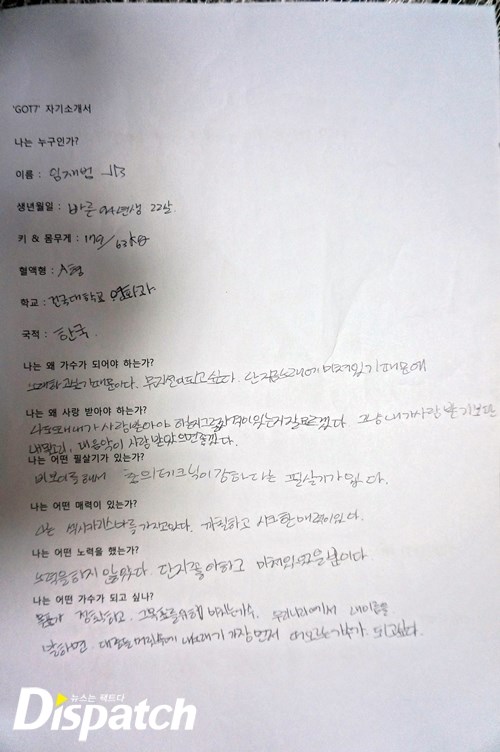 'GOT7' 자기소개서
나는 누구인가?
이름 : 임재범 JB
생년월일 : 빠른 94년생 22살.
키 & 몸무게 : 179 / 63
혈액형 : A형
학교 : 건국대학교 영화과
국적 : 한국.
나는 왜 가수가 되어야 하는가?
노래하고싶기때문이다. 뮤지션이되고싶다. 난 지금노래에 미쳐있기 때문에
나는 왜 사랑 받아야 하는가?
내가 사랑받아야 하는지 그런자격이있는지잘모르겠다 그냥 내가사랑 받기보단
내 음악이 사랑받았으면좋겠다.
나는 어떤 필살기가 있는가?
비보이를해서 춤의 테크닉이 강하다는 필살기가 있다.
나는 어떤 매력이 있는가?
나는 카리스마를 가지고있다. 까칠하고 시크한 매력이있다.
나는 어떤 노력을 했는가?
노력을하지 않았다. 단지좋아하고 미쳐있었을뿐이다.
나는 어떤 가수가 되고 싶나?
목표가 정확하고. 그 목표를위해 가수. 우리나라에서 내이름을
말하면 대중들 머릿속에 내노래가 가장먼저 떠오르는가수가 되고싶다.
뉴스는 팩트다
Dispatch